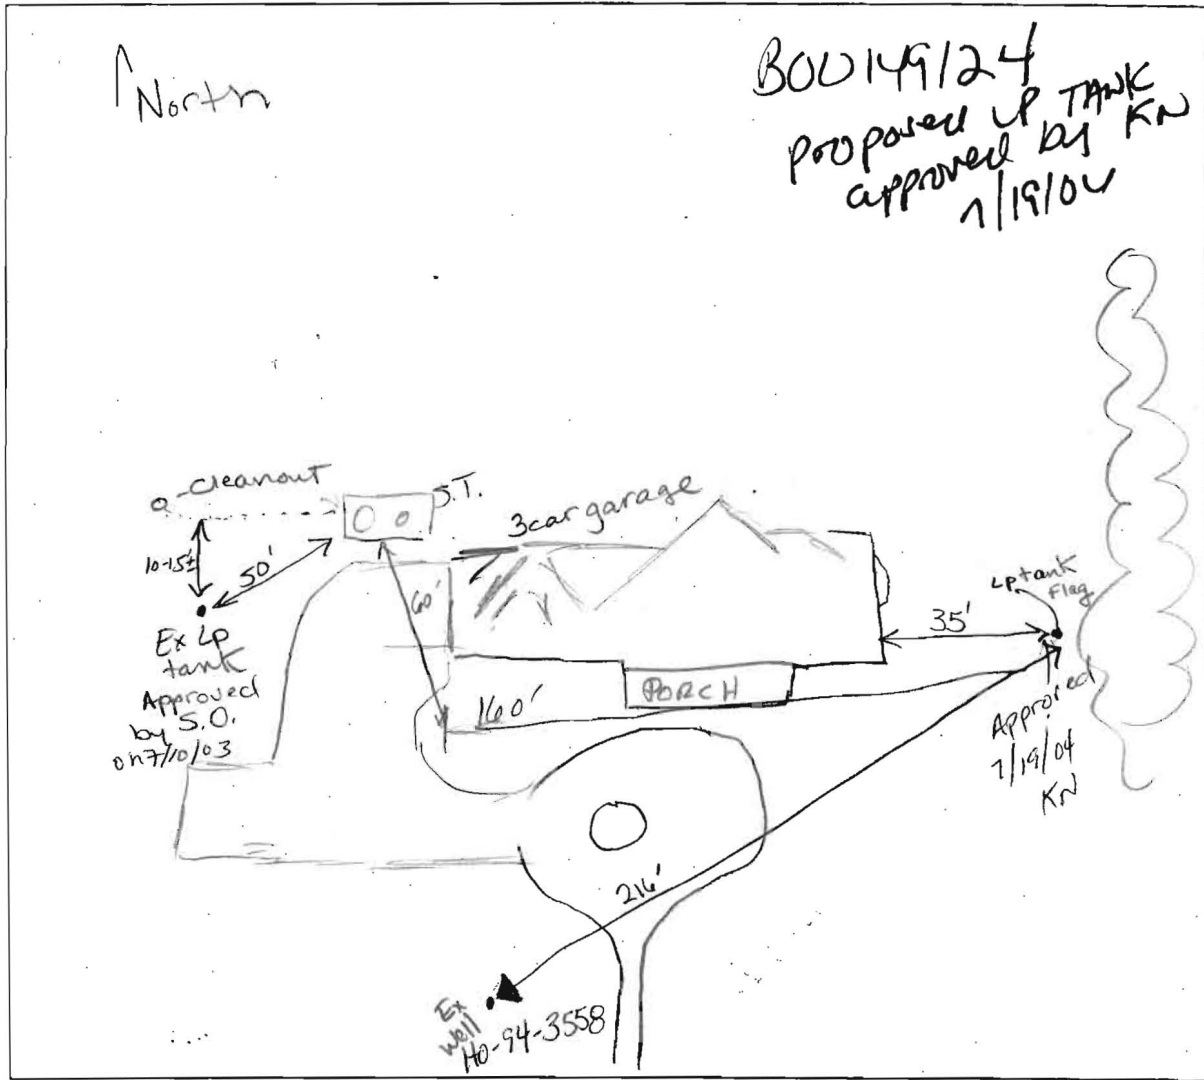 North
BOO149124
proposed LP TANK
approved by KN
7/19/04
o-cleanout
S.T.
3 car garage
10-15±
50'
60'
Ex Lp
tank
Approved
by S.O.
on 7/10/03
Lp tank
Flag
35'
PORCH
160'
Approved
7/19/04
KN
216'
Ex
well
HO-94-3558